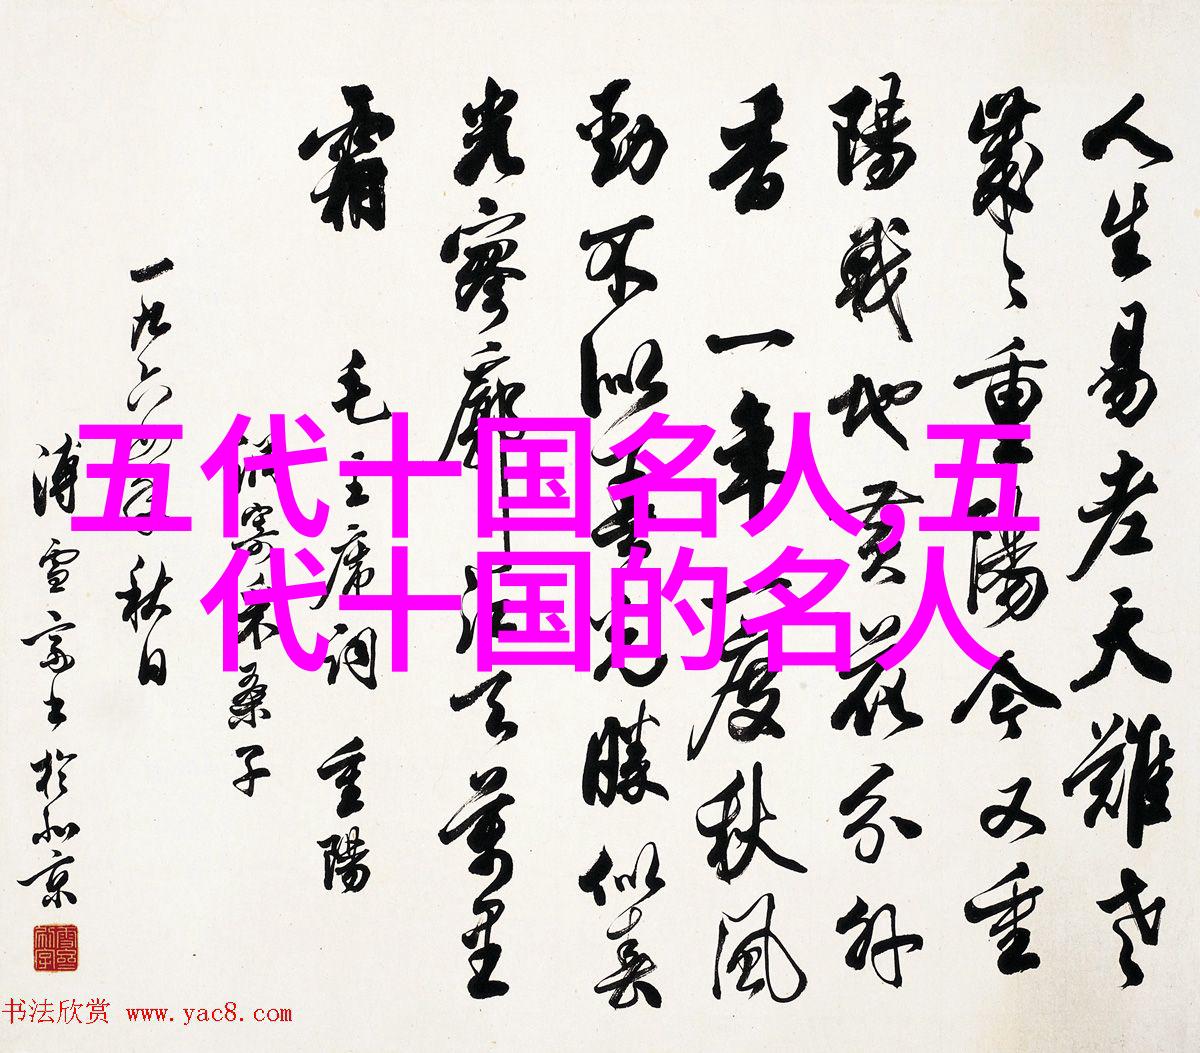 五代十国名人,五
代十国的名人
人生易老天難老
歲〻重陽今又重
陽戰地黃花分外
香 一年一度秋風
勁不似春光勝似春
光寥廓江天萬里
霜
毛主席詞 重陽
調寄采桑子
一九六 秋日
溥雪斋书於北京
书法欣赏 www.yac8.com